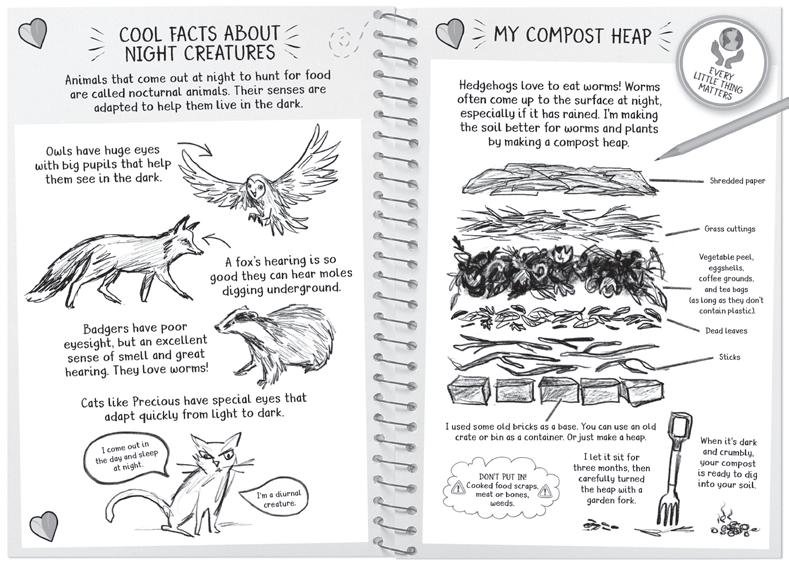 COOL FACTS ABOUT
NIGHT CREATURES
Animals that come out at night to hunt for food
are called nocturnal animals. Their senses are
adapted to help them live in the dark.
Owls have huge eyes
with big pupils that help
them see in the dark.
A fox's hearing is so
good they can hear moles
digging underground.
Badgers have poor
eyesight, but an excellent
sense of smell and great
hearing. They love worms!
Cats like Precious have special eyes that
adapt quickly from light to dark.
I come out in
the day and sleep
at night.
I'm a diurnal
creature.
MY COMPOST HEAP
EVERY
LITTLE THING
MATTERS
Hedgehogs love to eat worms! Worms
often come up to the surface at night,
especially if it has rained. I'm making
the soil better for worms and plants
by making a compost heap.
Shredded paper
Grass cuttings
Vegetable peel,
eggshells,
coffee grounds,
and tea bags
(as long as they don't
contain plastic).
Dead leaves
Sticks
I used some old bricks as a base. You can use an old
crate or bin as a container. Or just make a heap.
DON'T PUT IN!
Cooked food scraps,
meat or bones,
weeds.
I let it sit for
three months, then
carefully turned
the heap with a
garden fork.
When it's dark
and crumbly,
your compost
is ready to dig
into your soil.